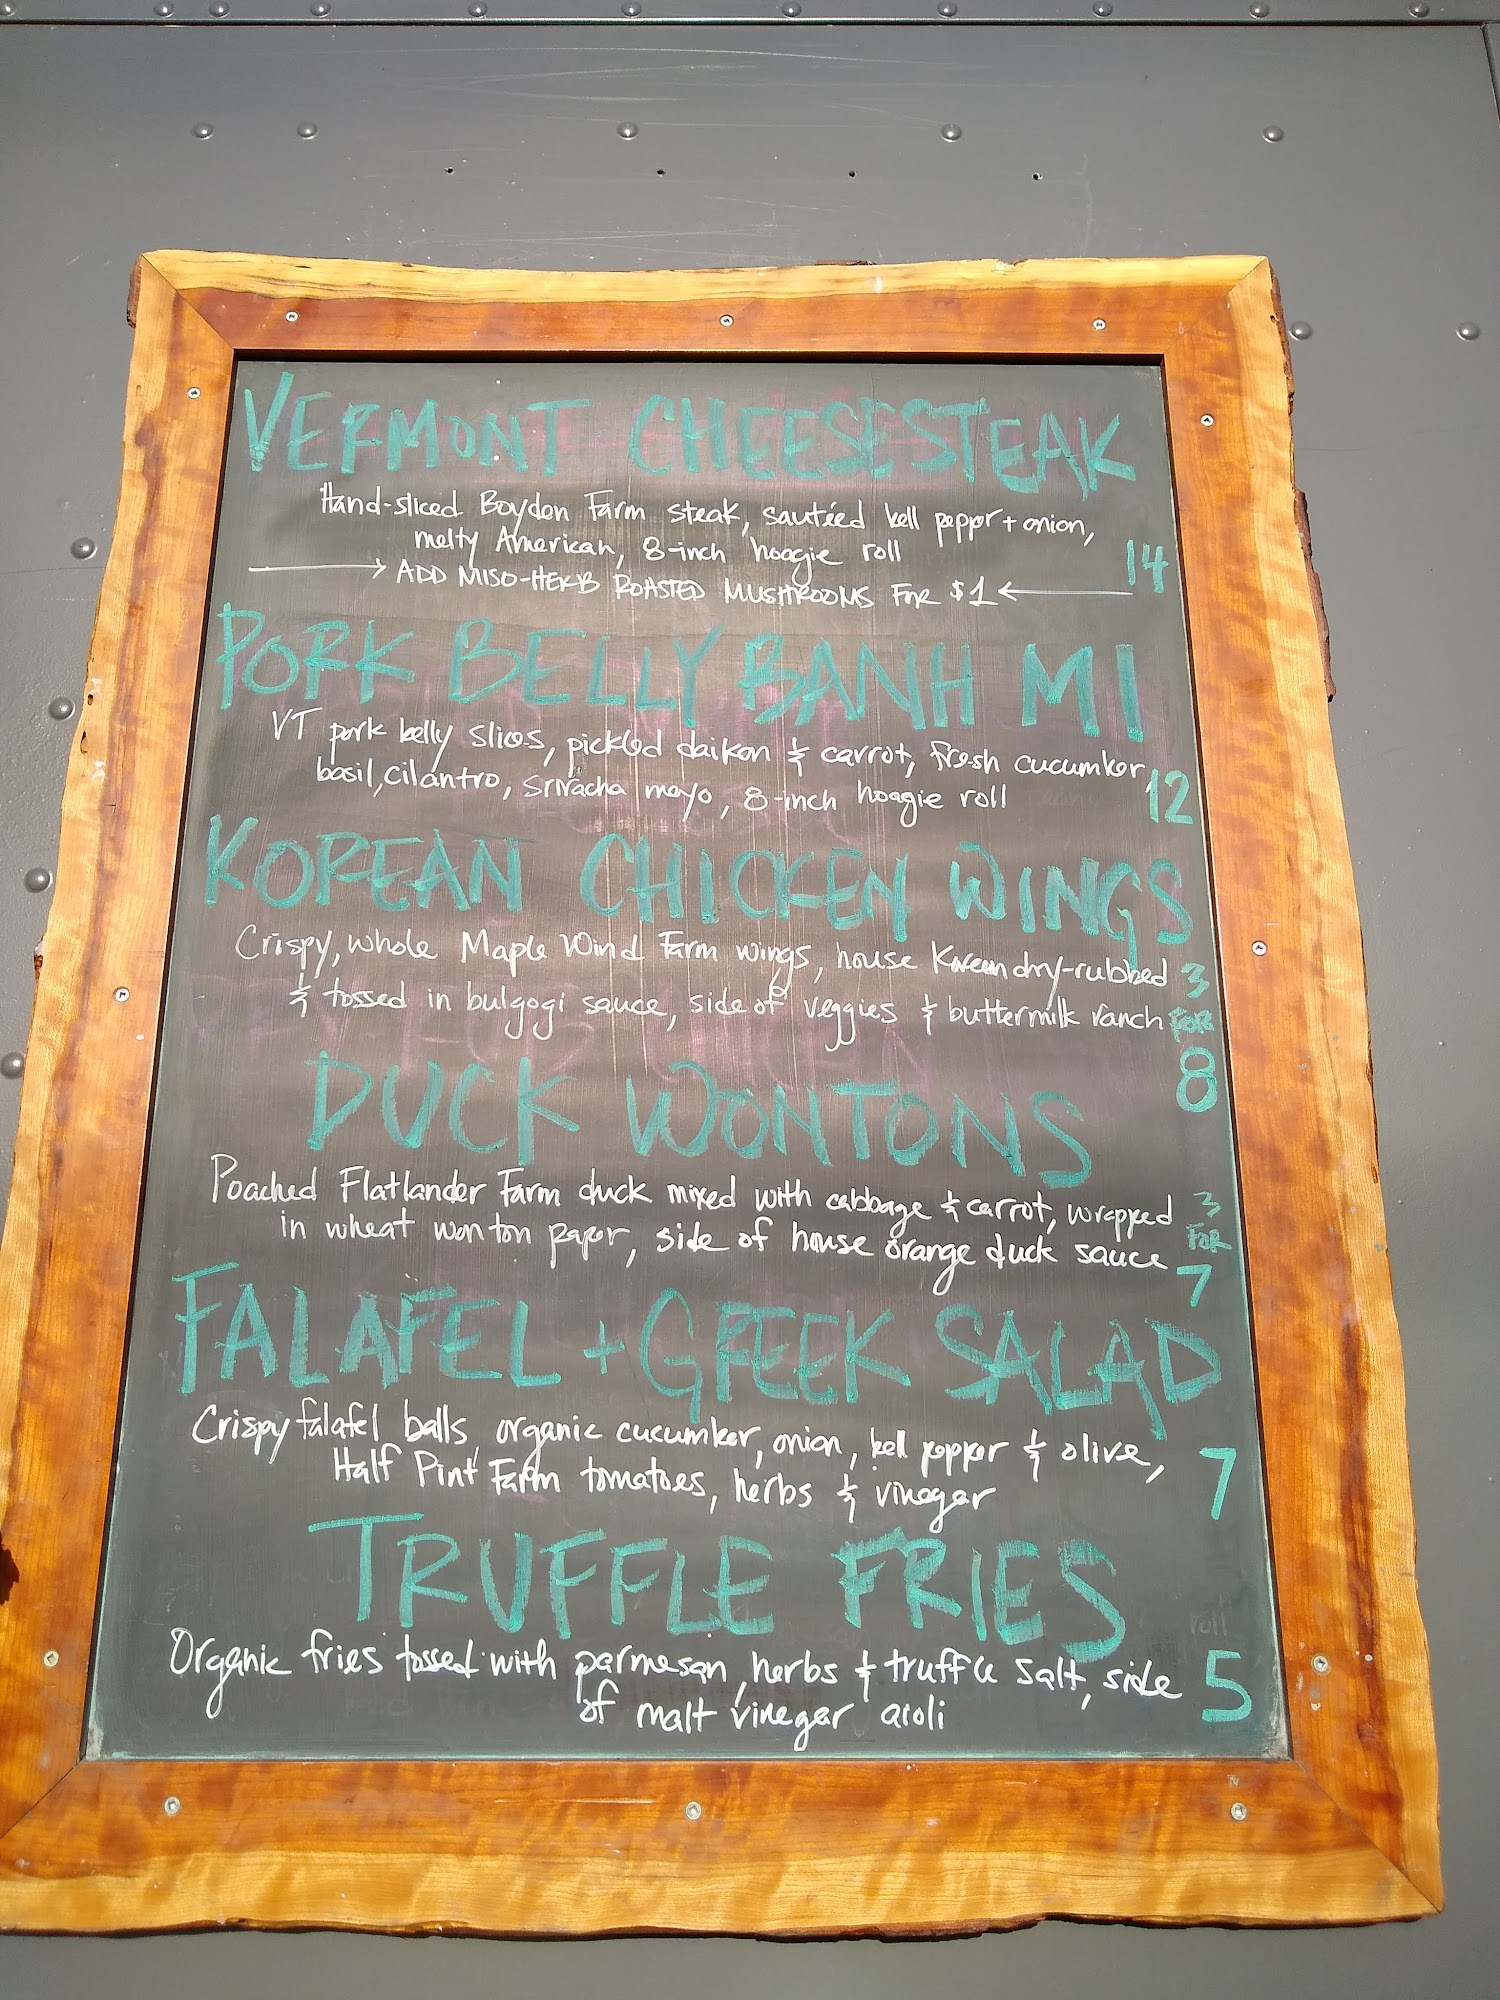 VERMONT CHEESESTEAK
Hand-sliced Boyden Farm steak, sautéed bell pepper + onion,
melty American, 8-inch hoagie roll
14
ADD MISO-HERB ROASTED MUSHROOMS FOR $1
PORK BELLY BANH MI
VT pork belly slices, pickled daikon & carrot, fresh cucumber,
basil, cilantro, sriracha mayo, 8-inch hoagie roll
12
KOREAN CHICKEN WINGS
Crispy, whole Maple Wind Farm wings, house Korean dry-rubbed
& tossed in bulgogi sauce, side of veggies & buttermilk ranch
3
FOR
8
DUCK WONTONS
Poached Flatlander Farm duck mixed with cabbage & carrot, wrapped
in wheat wonton paper, side of house orange duck sauce
3
FOR
7
FALAFEL + GREEK SALAD
Crispy falafel balls, organic cucumber, onion, bell pepper & olive,
Half Pint Farm tomatoes, herbs & vinegar
7
TRUFFLE FRIES
Organic fries tossed with parmesan, herbs & truffle salt, side
of malt vinegar aioli
5